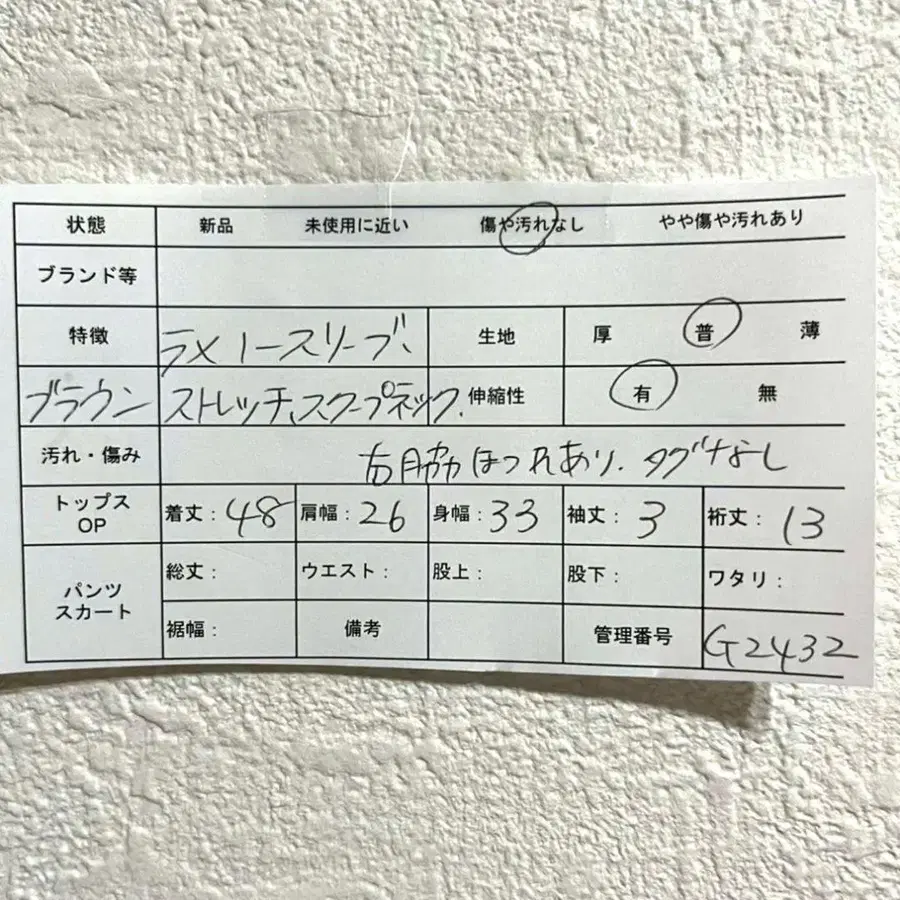 状態 新品 未使用に近い 傷や汚れなし やや傷や汚れあり
ブランド等
特徴 ラメノースリーブ、 生地 厚 普 薄
ブラウン ストレッチ、スクープネック. 伸縮性 有 無
汚れ・傷み 右脇ほつれあり. タグなし
トップス OP 着丈:48 肩幅:26 身幅:33 袖丈:3 裄丈:13
パンツ スカート 総丈: ウエスト: 股上: 股下: ワタリ:
裾幅: 備考 管理番号 G2432